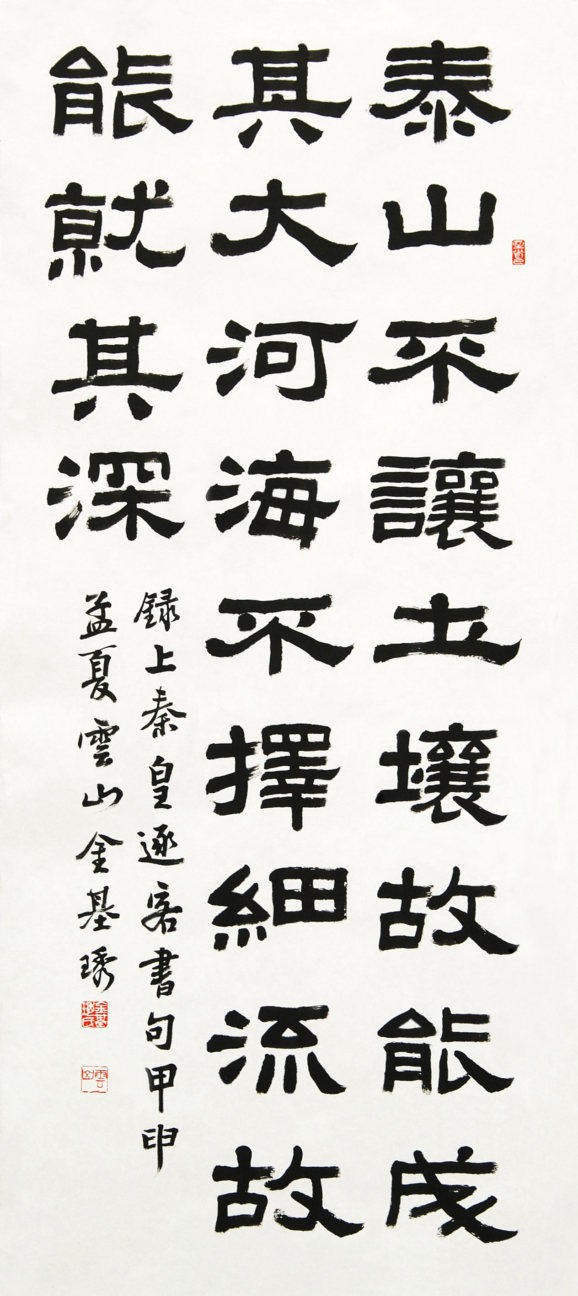 泰山不讓土壤故能成
其大河海不擇細流故
能就其深
録上秦皇逐客書句甲申
孟夏雲山金基琇